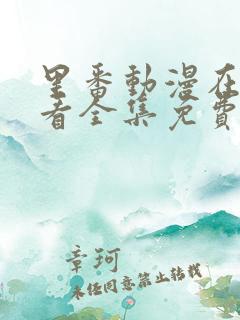 里番動漫在
看全集免費
章珂
未经同意禁止转载